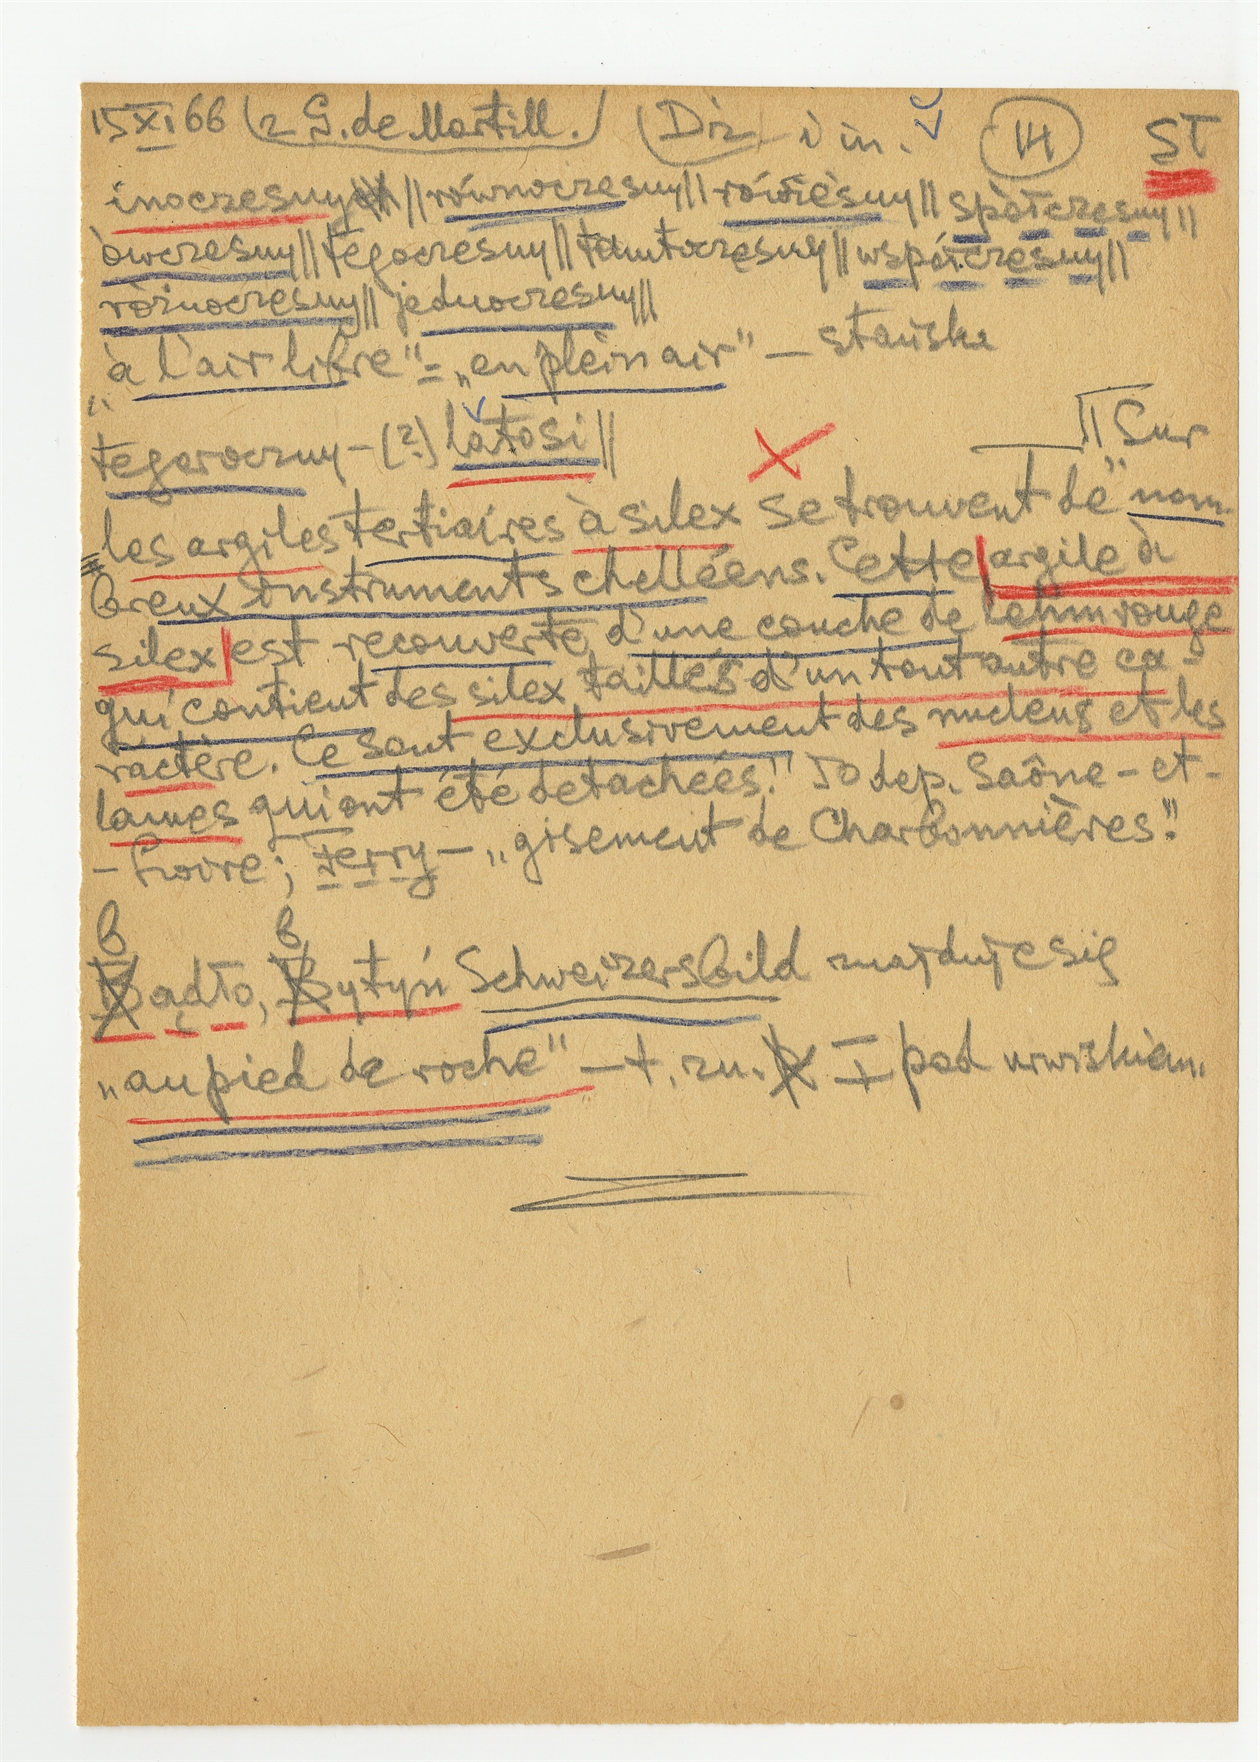 15 XI 66 (z G. de Mortill.) (Diz) i in. 14 ST
inoczesny || równoczesny || rówieśny || spółczesny ||
ówczesny || tegoczesny || tamtoczesny || współczesny ||
różnoczesny || jednoczesny ||
"à l'air libre" = „en plein air" — stańska
tegoroczny – (?) latosi || "Sur
les argiles tertiaires à silex se trouvent de nom-
breux instruments chelléens. Cette argile à
silex est recouverte d'une couche de lehm rouge
qui contient des silex taillés d'un tout autre ca-
ractère. Ce sont exclusivement des nucleus et les
lames qui ont été detachées." dep. Saône - et -
- Loire; Ferry — „gisement de Charbonnières".
Bądło, Bytyń Schweizersbild znajduje się
„au pied de roche" — t. zn. pod urwiskiem.